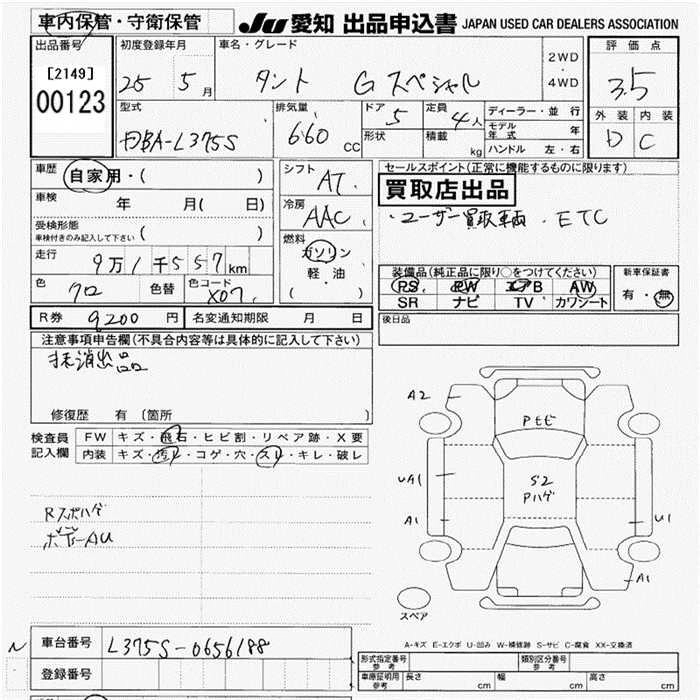 車内保管・守衛保管 JU 愛知 出品申込書 JAPAN USED CAR DEALERS ASSOCIATION
出品番号 初度登録年月 車名・グレード 評価点
[2149] 25 5 月 タント Gスペシャル 2WD・4WD 3.5
00123
型式 排気量 ドア 定員 ディーラー・並行 外装 内装
DBA-L375S 660 CC 5 4人 モデル年式 年 D C
形状 積載 kg ハンドル 左・右
車歴 自家用・( ) シフト AT セールスポイント(正常に機能するものに限ります)
車検 年 月( 日) 冷房 AAC 買取店出品
受検形態 ( ) ・ユーザー買取車両 . ETC
車検付きのみ記入して下さい
走行 9万1千557km 燃料 ガソリン 軽・油 ( ) 装備品(純正品に限り○をつけてください) 新車保証書
色 クロ 色替 色コード X07 PS PW エアB AW 有・無
SR ナビ TV カワシート
R券 9,200 円 名変通知期限 月 日 後日品
注意事項申告欄(不具合内容等は具体的に記入して下さい)
抹消出品
修復歴 有 (箇所
検査員 FW キズ・飛石・ヒビ割・リペア跡・X要
記入欄 内装 キズ・汚レ・コゲ・穴・スレ・キレ・破レ
A2
Pモビ
UA1
S2
Pハゲ
A1 U1
A1
スペア
Rスポハゲ
ボデーAU
A-キズ E-エクボ U-凹み W-補修跡 S-サビ C-腐食 XX-交換済
車台番号 L375S-0656188
登録番号
形式指定番号 参考 類別区分番号 参考
車庫証明用 参考 長さ cm 幅 cm 高さ cm